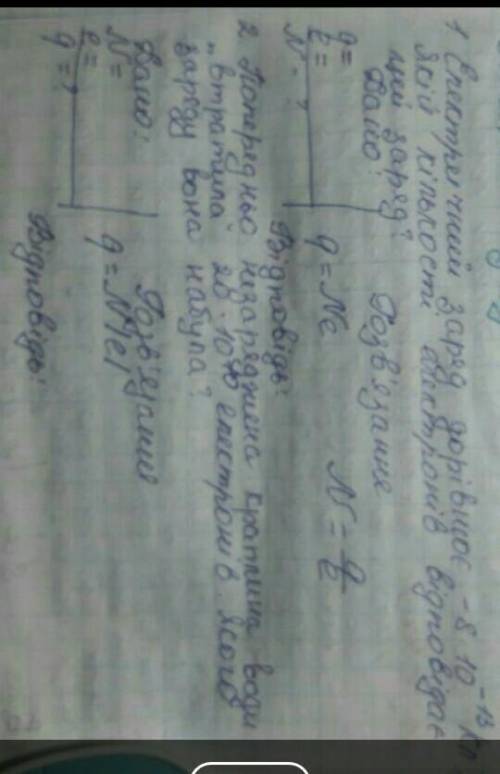 1 Електричний заряд дорівнює -8 10⁻¹³ Кл
якій кількості електронів відповідає
цей заряд?
Дано: Розв'язання
q =
e = q = Ne N = q/e
N - ?
Відповідь:
2. Попередньо незаряджена краплина води
втратила 28 · 10 електронів. Якого
заряду вона набула?
Дано: Розв'язання
N =
e = q = N|e|
q = ?
Відповідь: